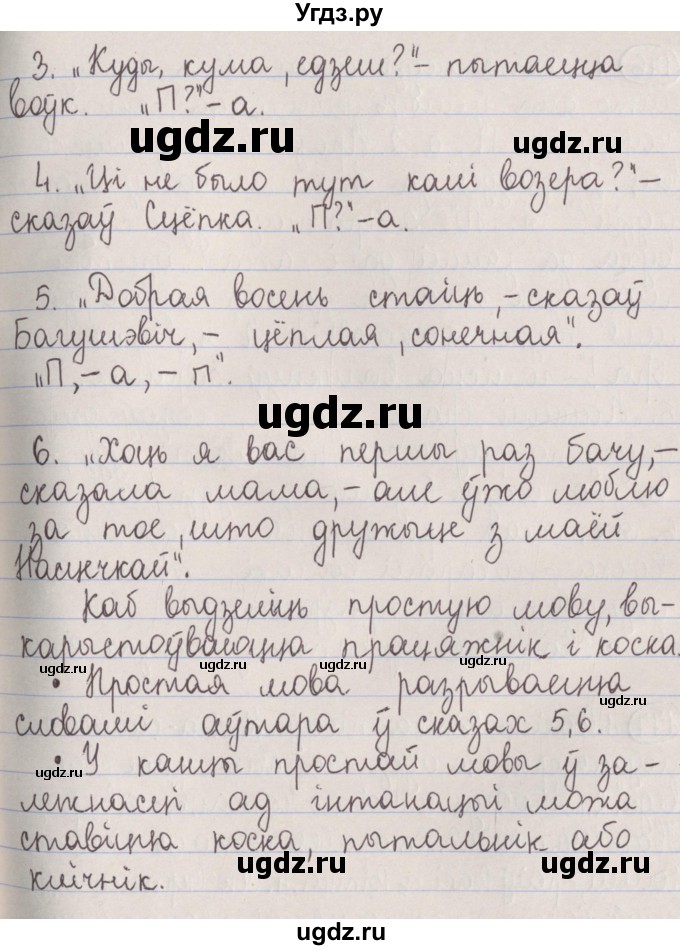 Угдз.ру
3. „Куды, кума, едзеш?“ – пытаецца
воўк. „П?“ – а.
ugdz.ru
ugdz.ru
4. „Ці не было тут калі возера?“ –
сказаў Сцёпка. „П?“ – а.
5. „Добрая восень стаіць, – сказаў
Багушэвіч, – цёплая, сонечная“.
„П, – а, – п“.
ugdz.ru
6. „Хоць я вас першы раз бачу, –
сказала мама, – але ўжо люблю
за тое, што дружыце з маёй
Насцечкай“.
Каб выдзеліць простую мову, вы-
карыстоўваюцца працяжнік і коска.
ugdz.ru
ugdz.ru
• Простая мова разрываецца
словамі аўтара ў сказах 5, 6.
• У канцы простай мовы ў за-
ugdz.ru
лежнасці ад інтанацыі можа
ставіцца коска, пытальнік або
клічнік.
ugdz.ru
ugdz.ru
Угдз.ру